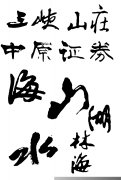 三峡山庄
中原证券
海山湖
水林海